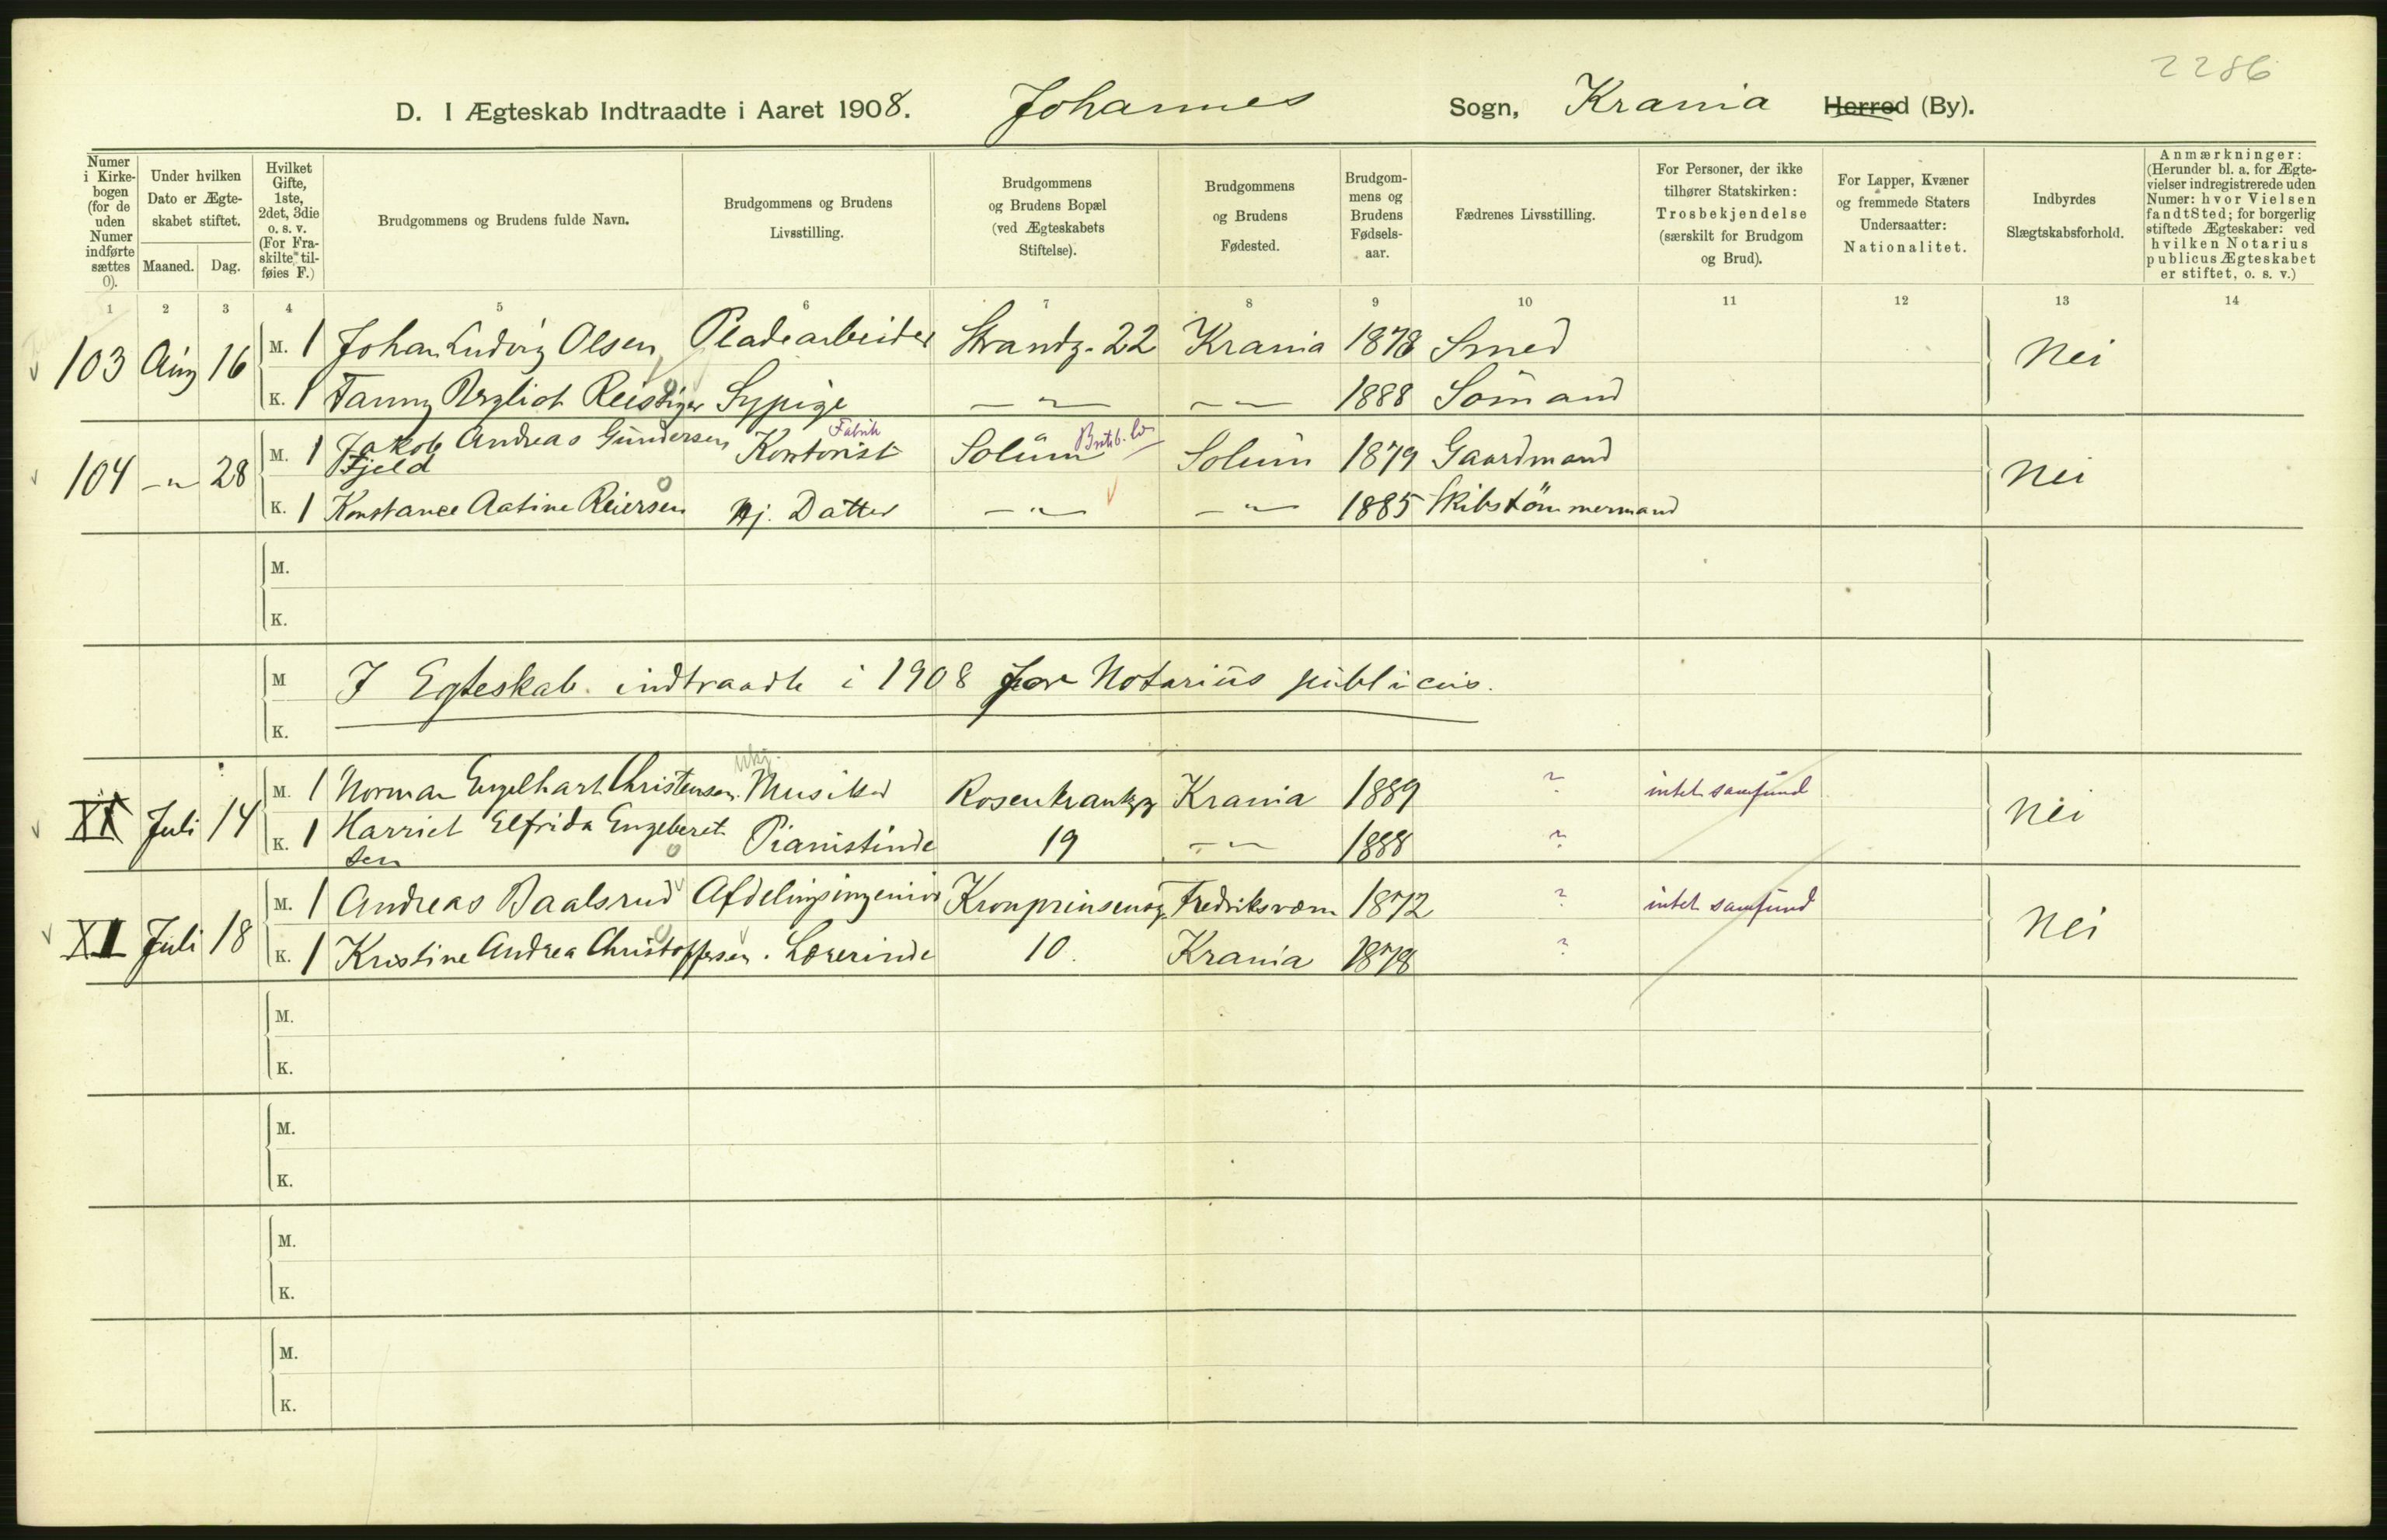 2286
D. I Ægteskab Indtraadte i Aaret 1908. Johannes Sogn, Krania Herred (By).
Numer i Kirkebogen (for de uden Numer indførte sættes 0).
Under hvilken Dato er Ægteskabet stiftet.
Maaned. Dag.
Hvilket Gifte, 1ste, 2det, 3die o. s. v. (For Fraskilte tilføies F.)
Brudgommens og Brudens fulde Navn.
Brudgommens og Brudens Livsstilling.
Brudgommens og Brudens Bopæl (ved Ægteskabets Stiftelse).
Brudgommens og Brudens Fødested.
Brudgommens og Brudens Fødselsaar.
Fædrenes Livsstilling.
For Personer, der ikke tilhører Statskirken: Trosbekjendelse (særskilt for Brudgom og Brud).
For Lapper, Kvæner og fremmede Staters Undersaatter: Nationalitet.
Indbyrdes Slægtskabsforhold.
Anmærkninger: (Herunder bl. a. for Ægtevielser indregistrerede uden Numer: hvor Vielsen fandt Sted; for borgerlig stiftede Ægteskaber: ved hvilken Notarius publicus Ægteskabet er stiftet, o. s. v.)
1 2 3 4 5 6 7 8 9 10 11 12 13 14
103 Aug 16 M. 1 Johan Ludvig Olsen Pladearbeider Strandg. 22 Krania 1878 Smed Nei
K. 1 Fanny Reissiger Sypige —"— —"— 1888 Sömand
104 —"— 28 M. 1 Jakob Andreas Gundersen Fjeld Fabrik Kontorist Solum Solum 1879 Gaardmand Nei
K. 1 Konstance Aatine Reiersen Hj. Datter —"— —"— 1885 Skibstömmermand
M.
K.
M I Egteskab indtraadte i 1908 for Notarius publicus.
K.
XI Juli 14 M. 1 Norman Engelhart Christensen. Musiker Rosenkrantzg Krania 1889 ? intet samfund Nei
K. 1 Harriet Elfrida Engebretsen Pianistinde 19 —"— 1888 ?
XII Juli 18 M. 1 Andreas Baalsrud Afdelingsingeniör Kronprinsensg. Fredriksværn 1872 ? intet samfund Nei
K. 1 Kristine Andrea Christoffersen. Lærerinde 10. Krania 1878 ?
M.
K.
M.
K.
M.
K.
M.
K.